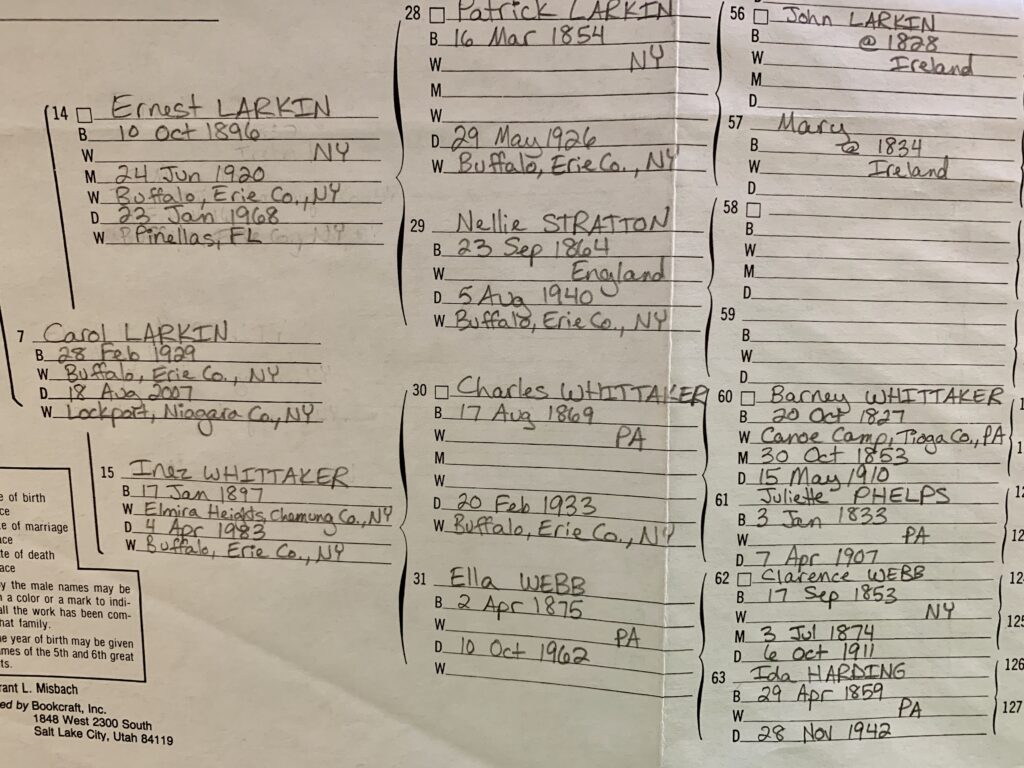 14 Ernest LARKIN
B 10 Oct 1896
W NY
M 24 Jun 1920
W Buffalo, Erie Co., NY
D 23 Jan 1968
W Pinellas, FL
7 Carol LARKIN
B 28 Feb 1929
W Buffalo, Erie Co., NY
D 18 Aug 2007
W Lockport, Niagara Co, NY
15 Inez WHITTAKER
B 17 Jan 1897
W Elmira Heights, Chemung Co., NY
D 4 Apr 1983
W Buffalo, Erie Co., NY
e of birth
ce
te of marriage
ace
te of death
ace
y the male names may be
n a color or a mark to indi-
all the work has been com-
hat family.
he year of birth may be given
ames of the 5th and 6th great
ts.
rant L. Misbach
ed by Bookcraft, Inc.
1848 West 2300 South
Salt Lake City, Utah 84119
28 Patrick LARKIN
B 16 Mar 1854
W NY
M
W
D 29 May 1926
W Buffalo, Erie Co., NY
29 Nellie STRATTON
B 23 Sep 1864
W England
D 5 Aug 1940
W Buffalo, Erie Co., NY
30 Charles WHITTAKER
B 17 Aug 1869
W PA
M
W
D 20 Feb 1933
W Buffalo, Erie Co., NY
31 Ella WEBB
B 2 Apr 1875
W PA
D 10 Oct 1962
W
56 John LARKIN
B @ 1828
W Ireland
M
D
57 Mary
B @ 1834
W Ireland
D
58
B
W
M
D
59
B
W
D
60 Barney WHITTAKER
B 20 Oct 1827
W Canoe Camp, Tioga Co., PA
M 30 Oct 1853
D 15 May 1910
61 Juliette PHELPS
B 3 Jan 1833
W PA
D 7 Apr 1907
62 Clarence WEBB
B 17 Sep 1853
W NY
M 3 Jul 1874
D 6 Oct 1911
63 Ida HARDING
B 29 Apr 1859
W PA
D 28 Nov 1942
1
1
12
12
124
125
126
127